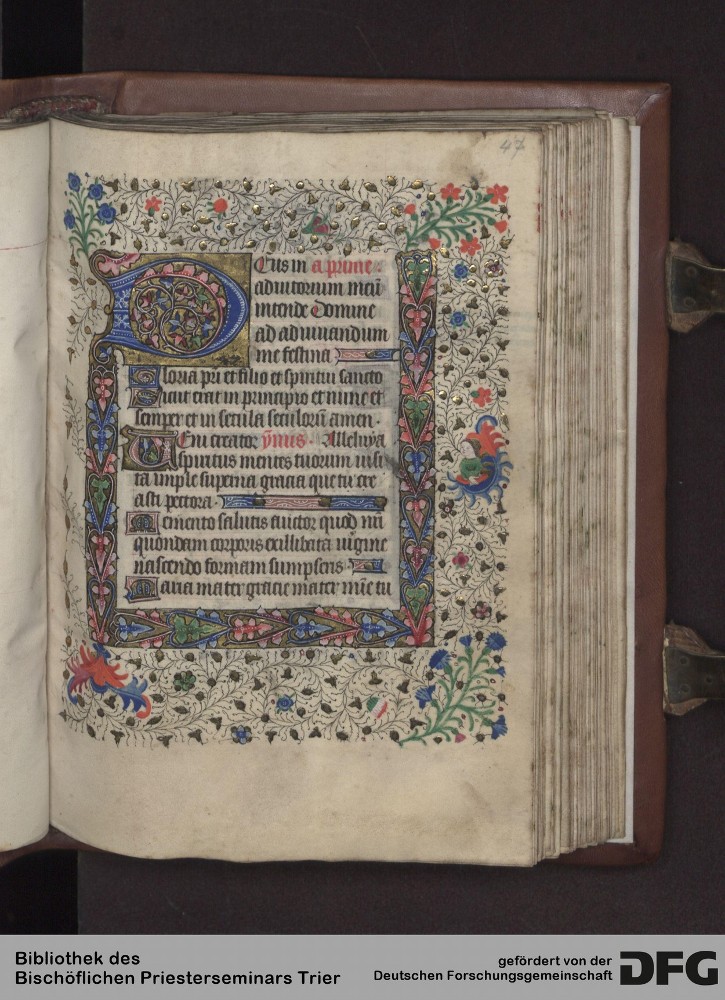 47
Deus in a prime
adiutorium meū
intende Domine
ad adiuuandum
me festina
Gloria pri et filio et spiritui sancto
Sicut erat in principio et nunc et
semper et in secula seculorū amen.
Ueni creator ymnus. Alleluya
spiritus mentes tuorum uisi
ta imple superna gracia que tu cre
asti pectora.
Memento salutis auctor quod nri
quondam corporis ex illibata uirgine
nascendo formam sumpseris
Maria mater gracie mater mīe tu
Bibliothek des
Bischöflichen Priesterseminars Trier
gefördert von der
Deutschen Forschungsgemeinschaft
DFG